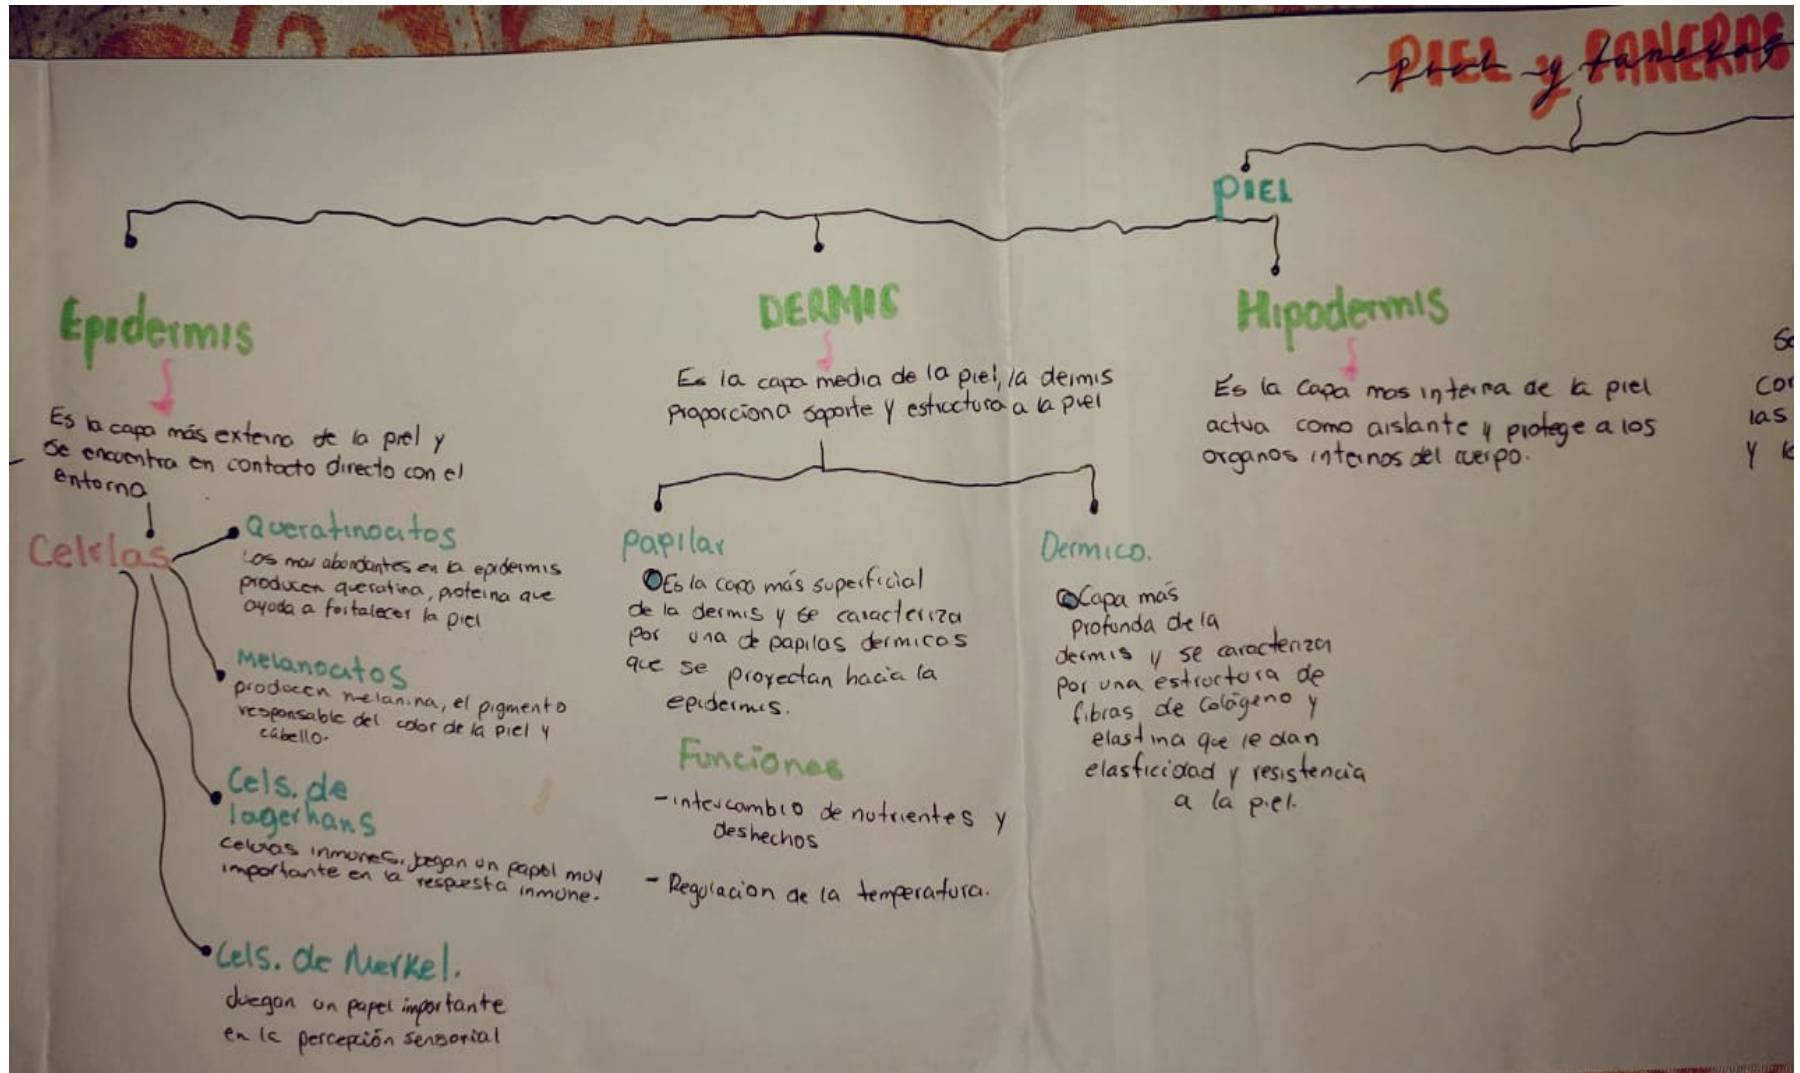 PIEL y FANERAS
PIEL
Epidermis
Es la capa más externa de la piel y
se encuentra en contacto directo con el
entorno
Celulas
Queratinocitos
Los mas abondantes en la epidermis
producen queratina, proteina que
ayuda a fortalecer la piel
Melanocitos
producen melanina, el pigmento
responsable del color de la piel y
cabello.
Cels. de
lagerhans
celulas inmunes, juegan un papel muy
importante en la respuesta inmune.
Cels. de Merkel.
Juegan un papel importante
en la percepción sensorial
DERMIS
Es la capa media de la piel, la dermis
proporciona soporte y estructura a la piel
Papilar
Es la capa más superficial
de la dermis y se caracteriza
por una de papilas dermicas
que se proyectan hacia la
epidermis.
Funciones
- intercambio de nutrientes y
deshechos
- Regulacion de la temperatura.
Dermico.
Capa más
profunda de la
dermis y se caracteriza
por una estructura de
fibras de colágeno y
elastina que le dan
elasticidad y resistencia
a la piel.
Hipodermis
Es la Capa mas interna de la piel
actua como aislante y protege a los
organos internos del cuerpo.
las
y